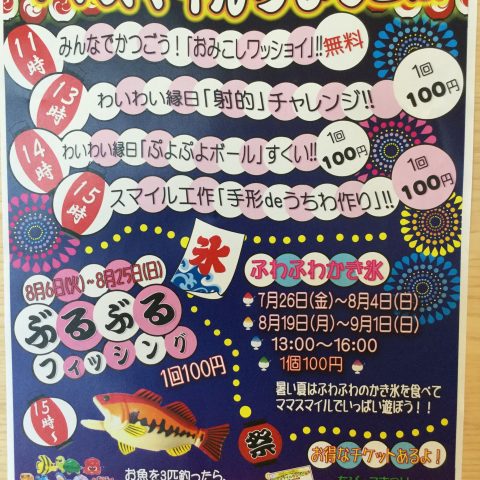 11時 みんなでかつごう！「おみこしワッショイ」!! 無料
13時 わいわい縁日「射的」チャレンジ!! 1回100円
14時 わいわい縁日「ぷよぷよボール」すくい!! 1回100円
15時 スマイル工作「手形deうちわ作り」!! 1回100円
8月6日(火)～8月25日(日)
ぶるぶる
フィッシング
1回100円
15時～
お魚を3匹釣ったら、
氷
ふわふわかき氷
7月26日(金)～8月4日(日)
8月19日(月)～9月1日(日)
13:00～16:00
1個100円
暑い夏はふわふわのかき氷を食べて
ママスマイルでいっぱい遊ぼう！！
祭
お得なチケットあるよ！